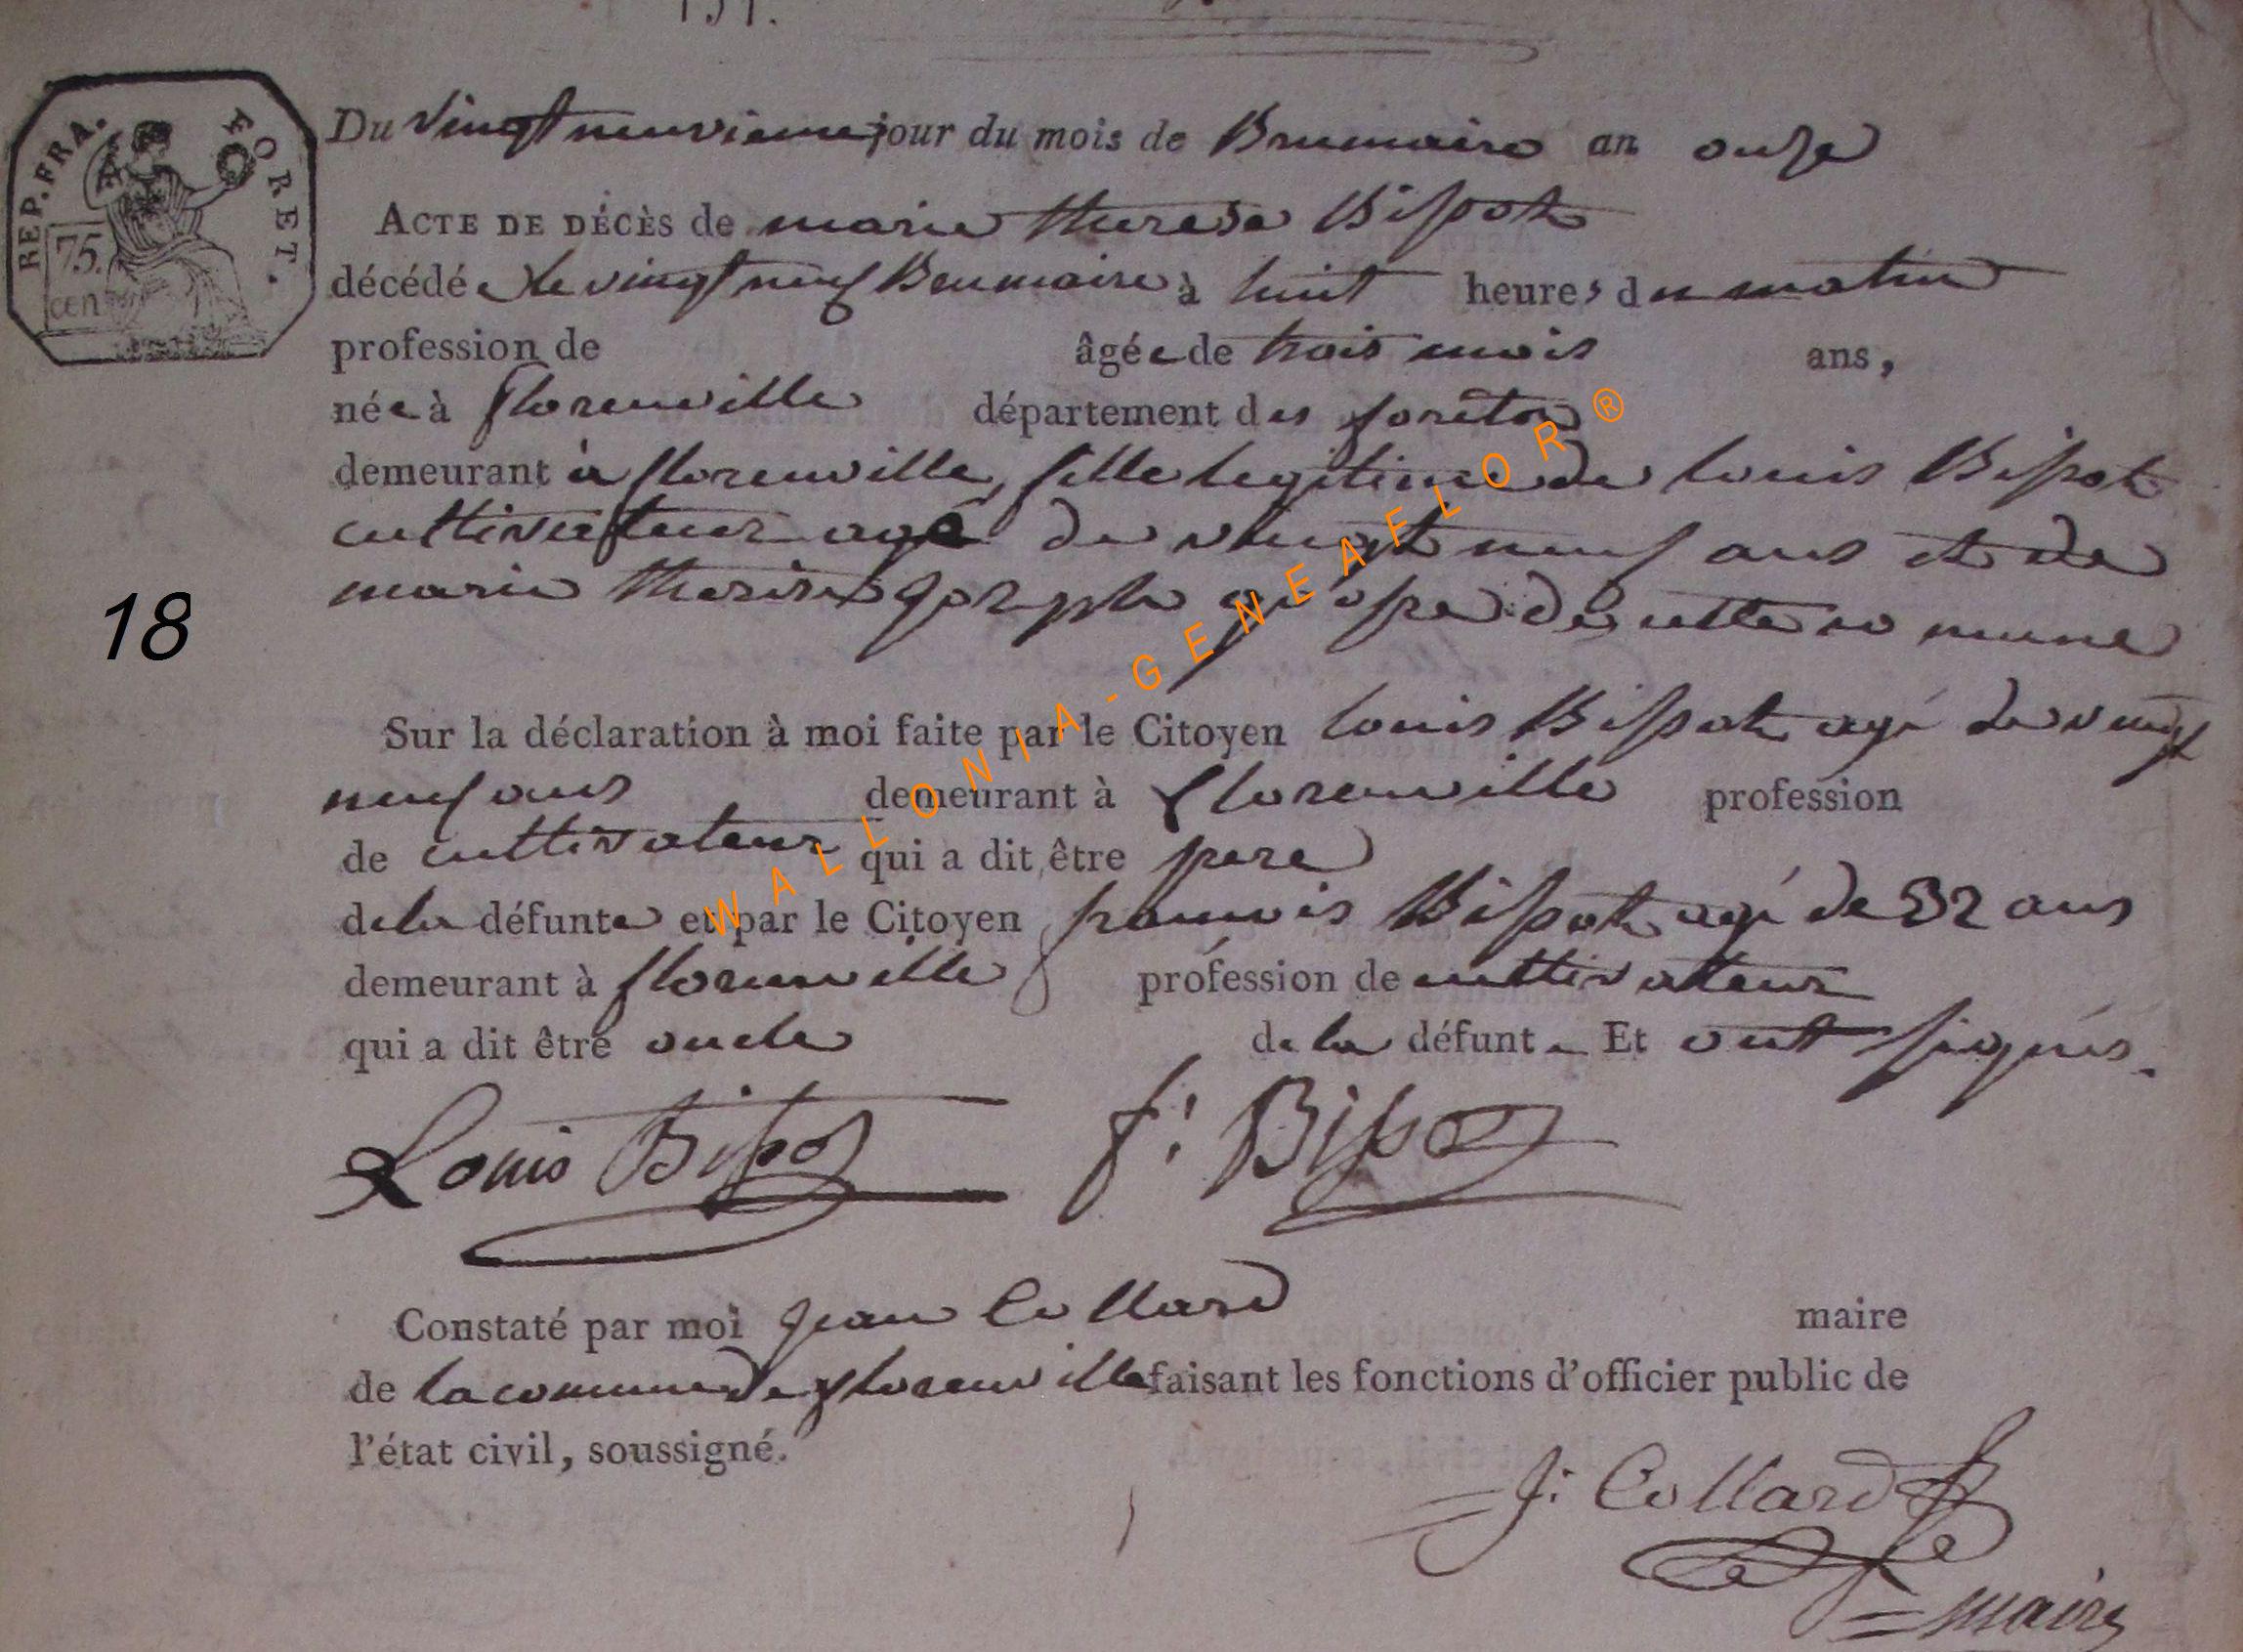 REP. FRA.
FORET.
75.
cen
Du vingt neuvieme jour du mois de Brumaire an onze
ACTE DE DÉCÈS de marie therese Bispot
décédée le vingt neuf Brumaire à huit heures du matin
profession de âgée de trois mois ans,
née à florenville département des forêts
demeurant à florenville, fille legitime de louis Bispot
cultivateur agé de vingt neuf ans et de
marie therese de cette commune
18
Sur la déclaration à moi faite par le Citoyen louis Bispot agé de vingt
neuf ans demeurant à florenville profession
de cultivateur qui a dit être pere
de la défunte et par le Citoyen francois Bispot agé de 32 ans
demeurant à florenville profession de cultivateur
qui a dit être oncle de la défunte Et ont signés.
Louis Bispot f: Bispot
Constaté par moi jean Collard maire
de la commune de florenville faisant les fonctions d'officier public de
l'état civil, soussigné.
J: Collard
maire
WALLONIA-GENEAFLOR®